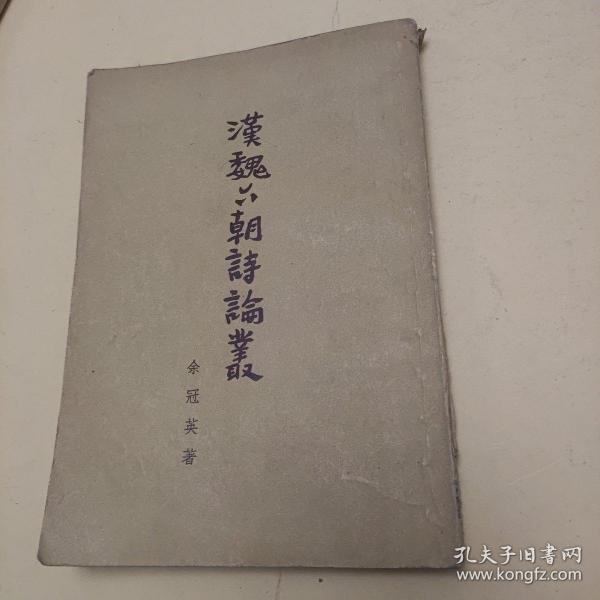 漢魏六朝詩論叢
余冠英著
孔夫子旧书网
www.kongfz.com